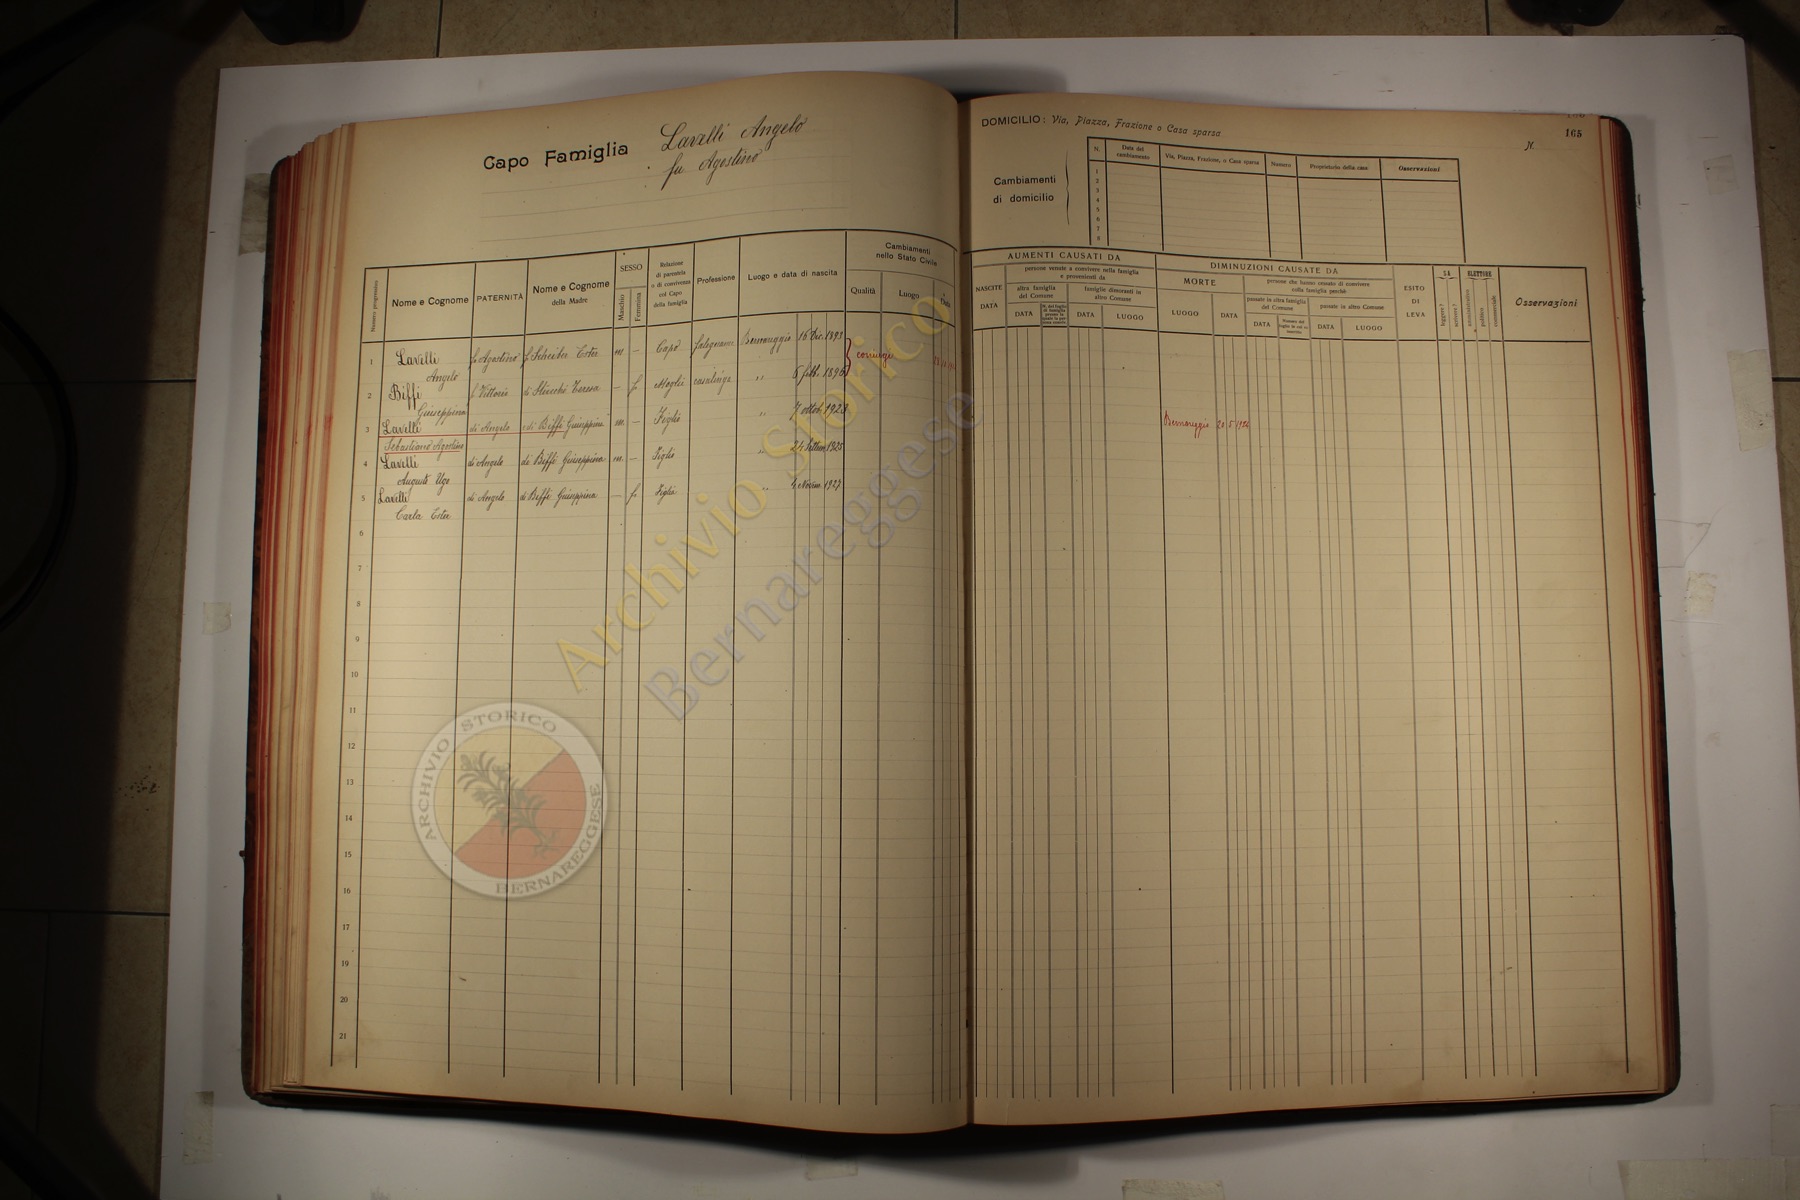 Capo Famiglia Lavelli Angelo
fu Agostino
Numero progressivo
Nome e Cognome
PATERNITÀ
Nome e Cognome
della Madre
SESSO
Maschio
Femmina
Relazione
di parentela
o di convivenza
col Capo
della famiglia
Professione
Luogo e data di nascita
Cambiamenti
nello Stato Civile
Qualità
Luogo
Data
1 Lavelli fu Agostino fu Scheiber Ester m — Capo falegname Bernareggio 16 Dic. 1893 coniugi
Angelo
2 Biffi fu Vittorio di Stucchi Teresa — f Moglie casalinga " 6 febb. 1896
Giuseppina
3 Lavelli di Angelo di Biffi Giuseppina m. — Figlio " 7 ottob. 1923
Sebastiano Agostino
4 Lavelli di Angelo di Biffi Giuseppina m. — Figlio " 24 Settem. 1925
Augusto Ugo
5 Lavelli di Angelo di Biffi Giuseppina — f. Figlia " 4 Novem. 1927
Carla Ester
6
7
8
9
10
11
12
13
14
15
16
17
18
19
20
21
DOMICILIO: Via, Piazza, Frazione o Casa sparsa
N.
165
Cambiamenti
di domicilio
N.
Data del
cambiamento
Via, Piazza, Frazione, o Casa sparsa
Numero
Proprietario della casa
Osservazioni
1
2
3
4
5
6
7
8
AUMENTI CAUSATI DA
NASCITE
DATA
persone venute a convivere nella famiglia
e provenienti da
altra famiglia
del Comune
DATA
famiglie dimoranti in
altro Comune
DATA
LUOGO
DIMINUZIONI CAUSATE DA
MORTE
LUOGO
DATA
persone che hanno cessato di convivere
colla famiglia perchè
passate in altra famiglia
del Comune
DATA
passate in altro Comune
DATA
LUOGO
ESITO
DI
LEVA
SA
leggere?
scrivere?
ELETTORE
amministrativo
politico
commerciale
Osservazioni
Bernareggio 20 5 1924
Archivio Storico
Bernareggese
ARCHIVIO STORICO
BERNAREGGESE